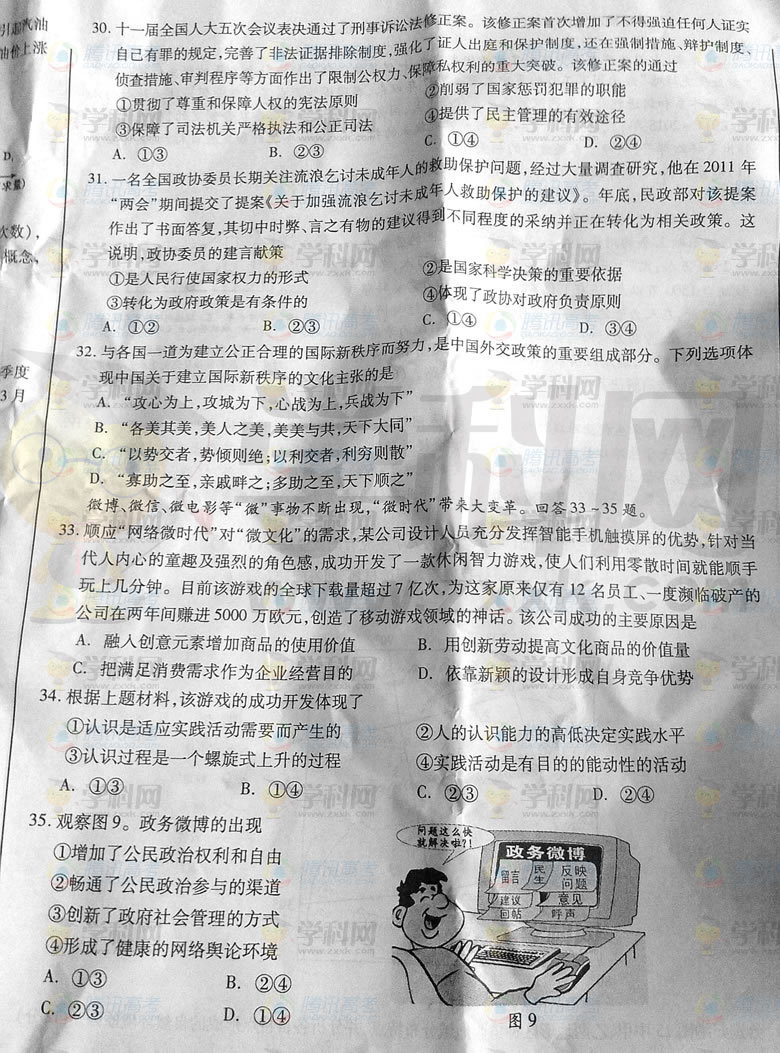 引起汽油
油价上涨
D,
求量)
次数),
概念、
季度
3月
30. 十一届全国人大五次会议表决通过了刑事诉讼法修正案。该修正案首次增加了不得强迫任何人证实
自己有罪的规定,完善了非法证据排除制度,强化了证人出庭和保护制度,还在强制措施、辩护制度、
侦查措施、审判程序等方面作出了限制公权力、保障私权利的重大突破。该修正案的通过
①贯彻了尊重和保障人权的宪法原则 ②削弱了国家惩罚犯罪的职能
③保障了司法机关严格执法和公正司法 ④提供了民主管理的有效途径
A. ①③ B. ②③ C. ①④ D. ②④
31. 一名全国政协委员长期关注流浪乞讨未成年人的救助保护问题,经过大量调查研究,他在2011年
“两会”期间提交了提案《关于加强流浪乞讨未成年人救助保护的建议》。年底,民政部对该提案
作出了书面答复,其切中时弊、言之有物的建议得到不同程度的采纳并正在转化为相关政策。这
说明,政协委员的建言献策
①是人民行使国家权力的形式 ②是国家科学决策的重要依据
③转化为政府政策是有条件的 ④体现了政协对政府负责原则
A. ①② B. ②③ C. ①④ D. ③④
32. 与各国一道为建立公正合理的国际新秩序而努力,是中国外交政策的重要组成部分。下列选项体
现中国关于建立国际新秩序的文化主张的是
A. “攻心为上,攻城为下,心战为上,兵战为下”
B. “各美其美,美人之美,美美与共,天下大同”
C. “以势交者,势倾则绝;以利交者,利穷则散”
D. “寡助之至,亲戚畔之;多助之至,天下顺之”
微博、微信、微电影等“微”事物不断出现,“微时代”带来大变革。回答33~35题。
33. 顺应“网络微时代”对“微文化”的需求,某公司设计人员充分发挥智能手机触摸屏的优势,针对当
代人内心的童趣及强烈的角色感,成功开发了一款休闲智力游戏,使人们利用零散时间就能顺手
玩上几分钟。目前该游戏的全球下载量超过7亿次,为这家原来仅有12名员工、一度濒临破产的
公司在两年间赚进5000万欧元,创造了移动游戏领域的神话。该公司成功的主要原因是
A. 融人创意元素增加商品的使用价值 B. 用创新劳动提高文化商品的价值量
C. 把满足消费需求作为企业经营目的 D. 依靠新颖的设计形成自身竞争优势
34. 根据上题材料,该游戏的成功开发体现了
①认识是适应实践活动需要而产生的 ②人的认识能力的高低决定实践水平
③认识过程是一个螺旋式上升的过程 ④实践活动是有目的的能动性的活动
A. ①③ B. ①④ C. ②③ D. ②④
35. 观察图9。政务微博的出现
①增加了公民政治权利和自由
②畅通了公民政治参与的渠道
③创新了政府社会管理的方式
④形成了健康的网络舆论环境
A. ①③ B. ②④
C. ②③ D. ①④
问题这么快
就解决啦?!
政务微博
留言 民生 反映问题
建议 意见
回帖 呼声
图9
学科网
www.zxxk.com
腾讯高考